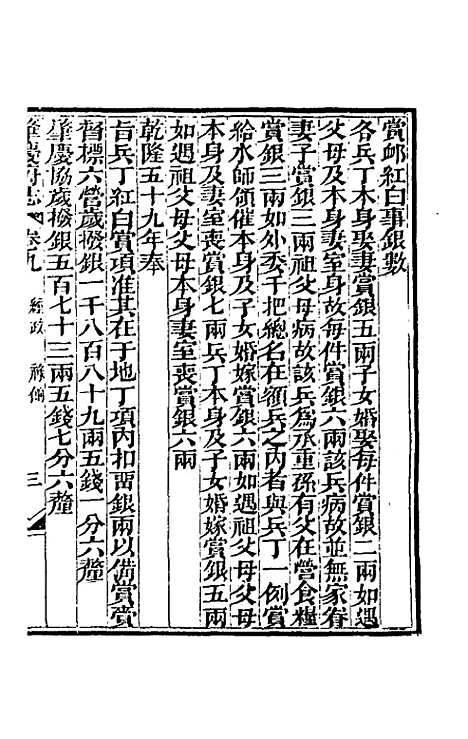 賞䘏紅白事銀數
各兵丁本身娶妻賞銀五兩子女婚娶每件賞銀二兩如遇
父母及本身妻室身故每件賞銀六兩該兵病故並無家眷
妻子賞銀三兩祖父母病故該兵爲承重孫有父在營食糧
賞銀三兩如外委千把總名在額兵之內者與兵丁一例賞
給水師領催本身及子女婚嫁賞銀六兩如遇祖父母父母
本身及妻室喪賞銀七兩兵丁本身及子女婚嫁賞銀五兩
如遇祖父母父母本身妻室喪賞銀六兩
乾隆五十九年奉
旨兵丁紅白賞項准其在于地丁項內扣畱銀兩以備賞賚
督標六營歲撥銀一千八百八十九兩五錢一分六釐
肇慶協歲撥銀五百七十三兩五錢七分六釐
肇慶府志 卷九 經政 三